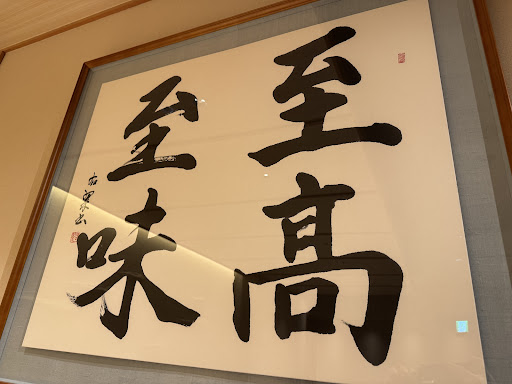 至高
至味